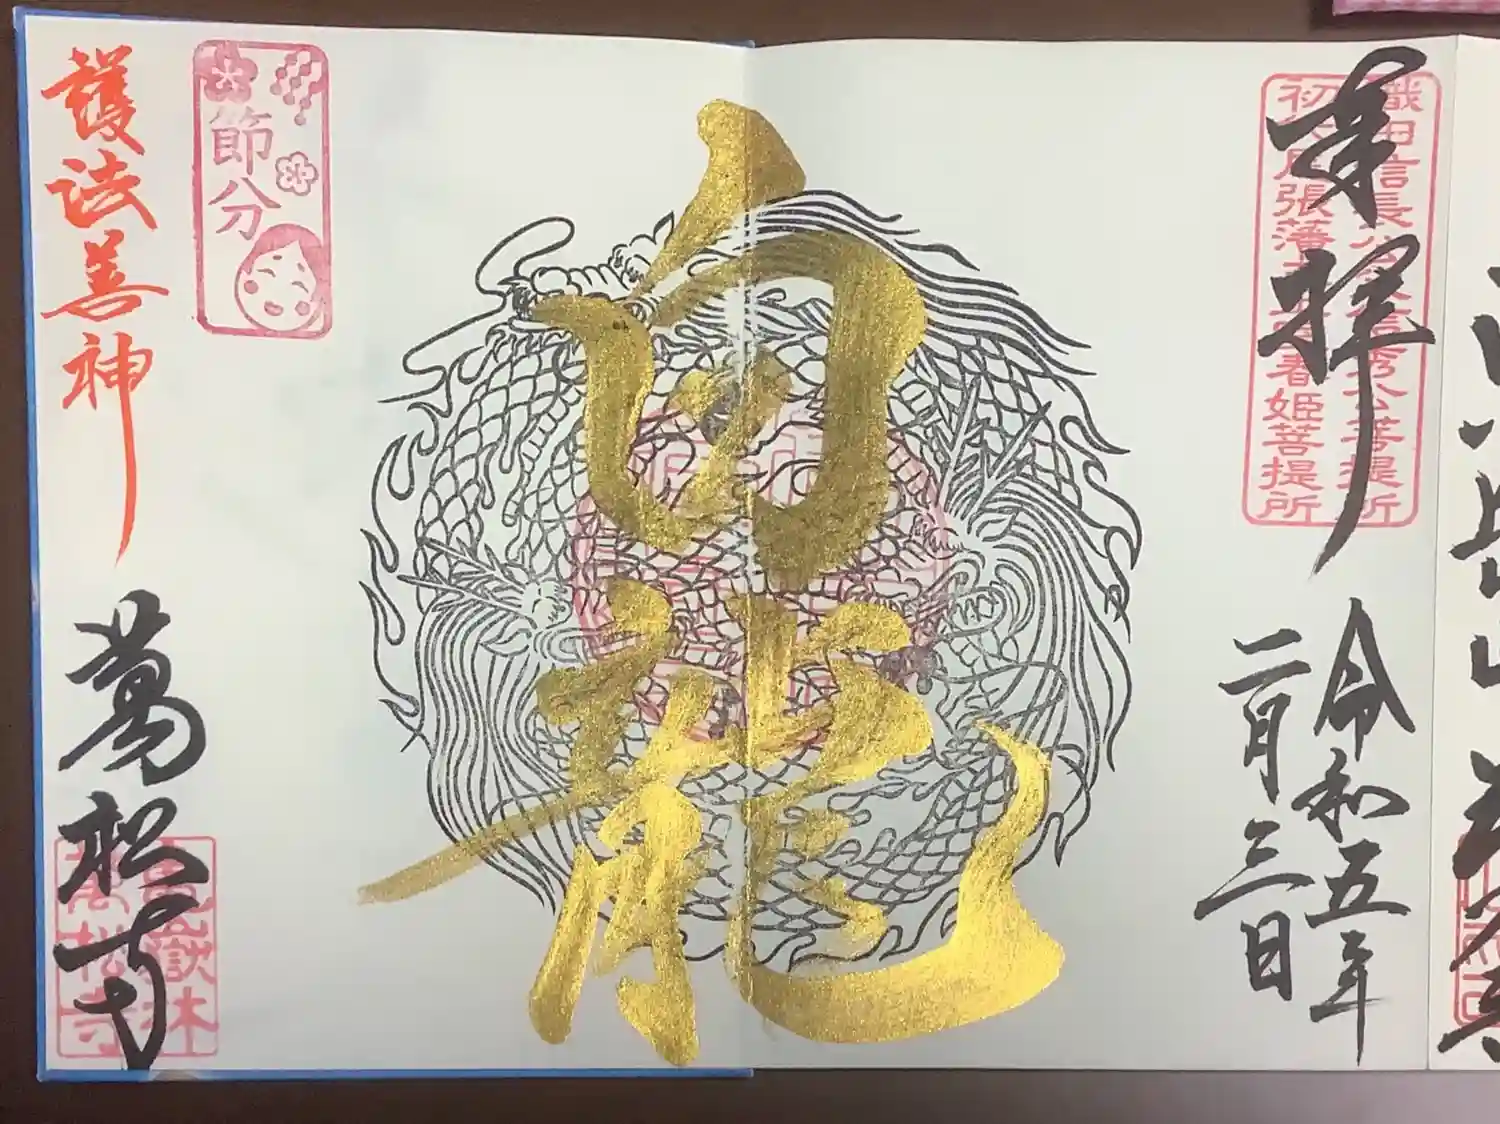 奉拝
織田信長公父信秀公菩提所
初代尾張藩主正室春姫菩提所
令和五年
二月三日
白龍
節分
護法善神
萬松寺
亀嶽林
萬松寺